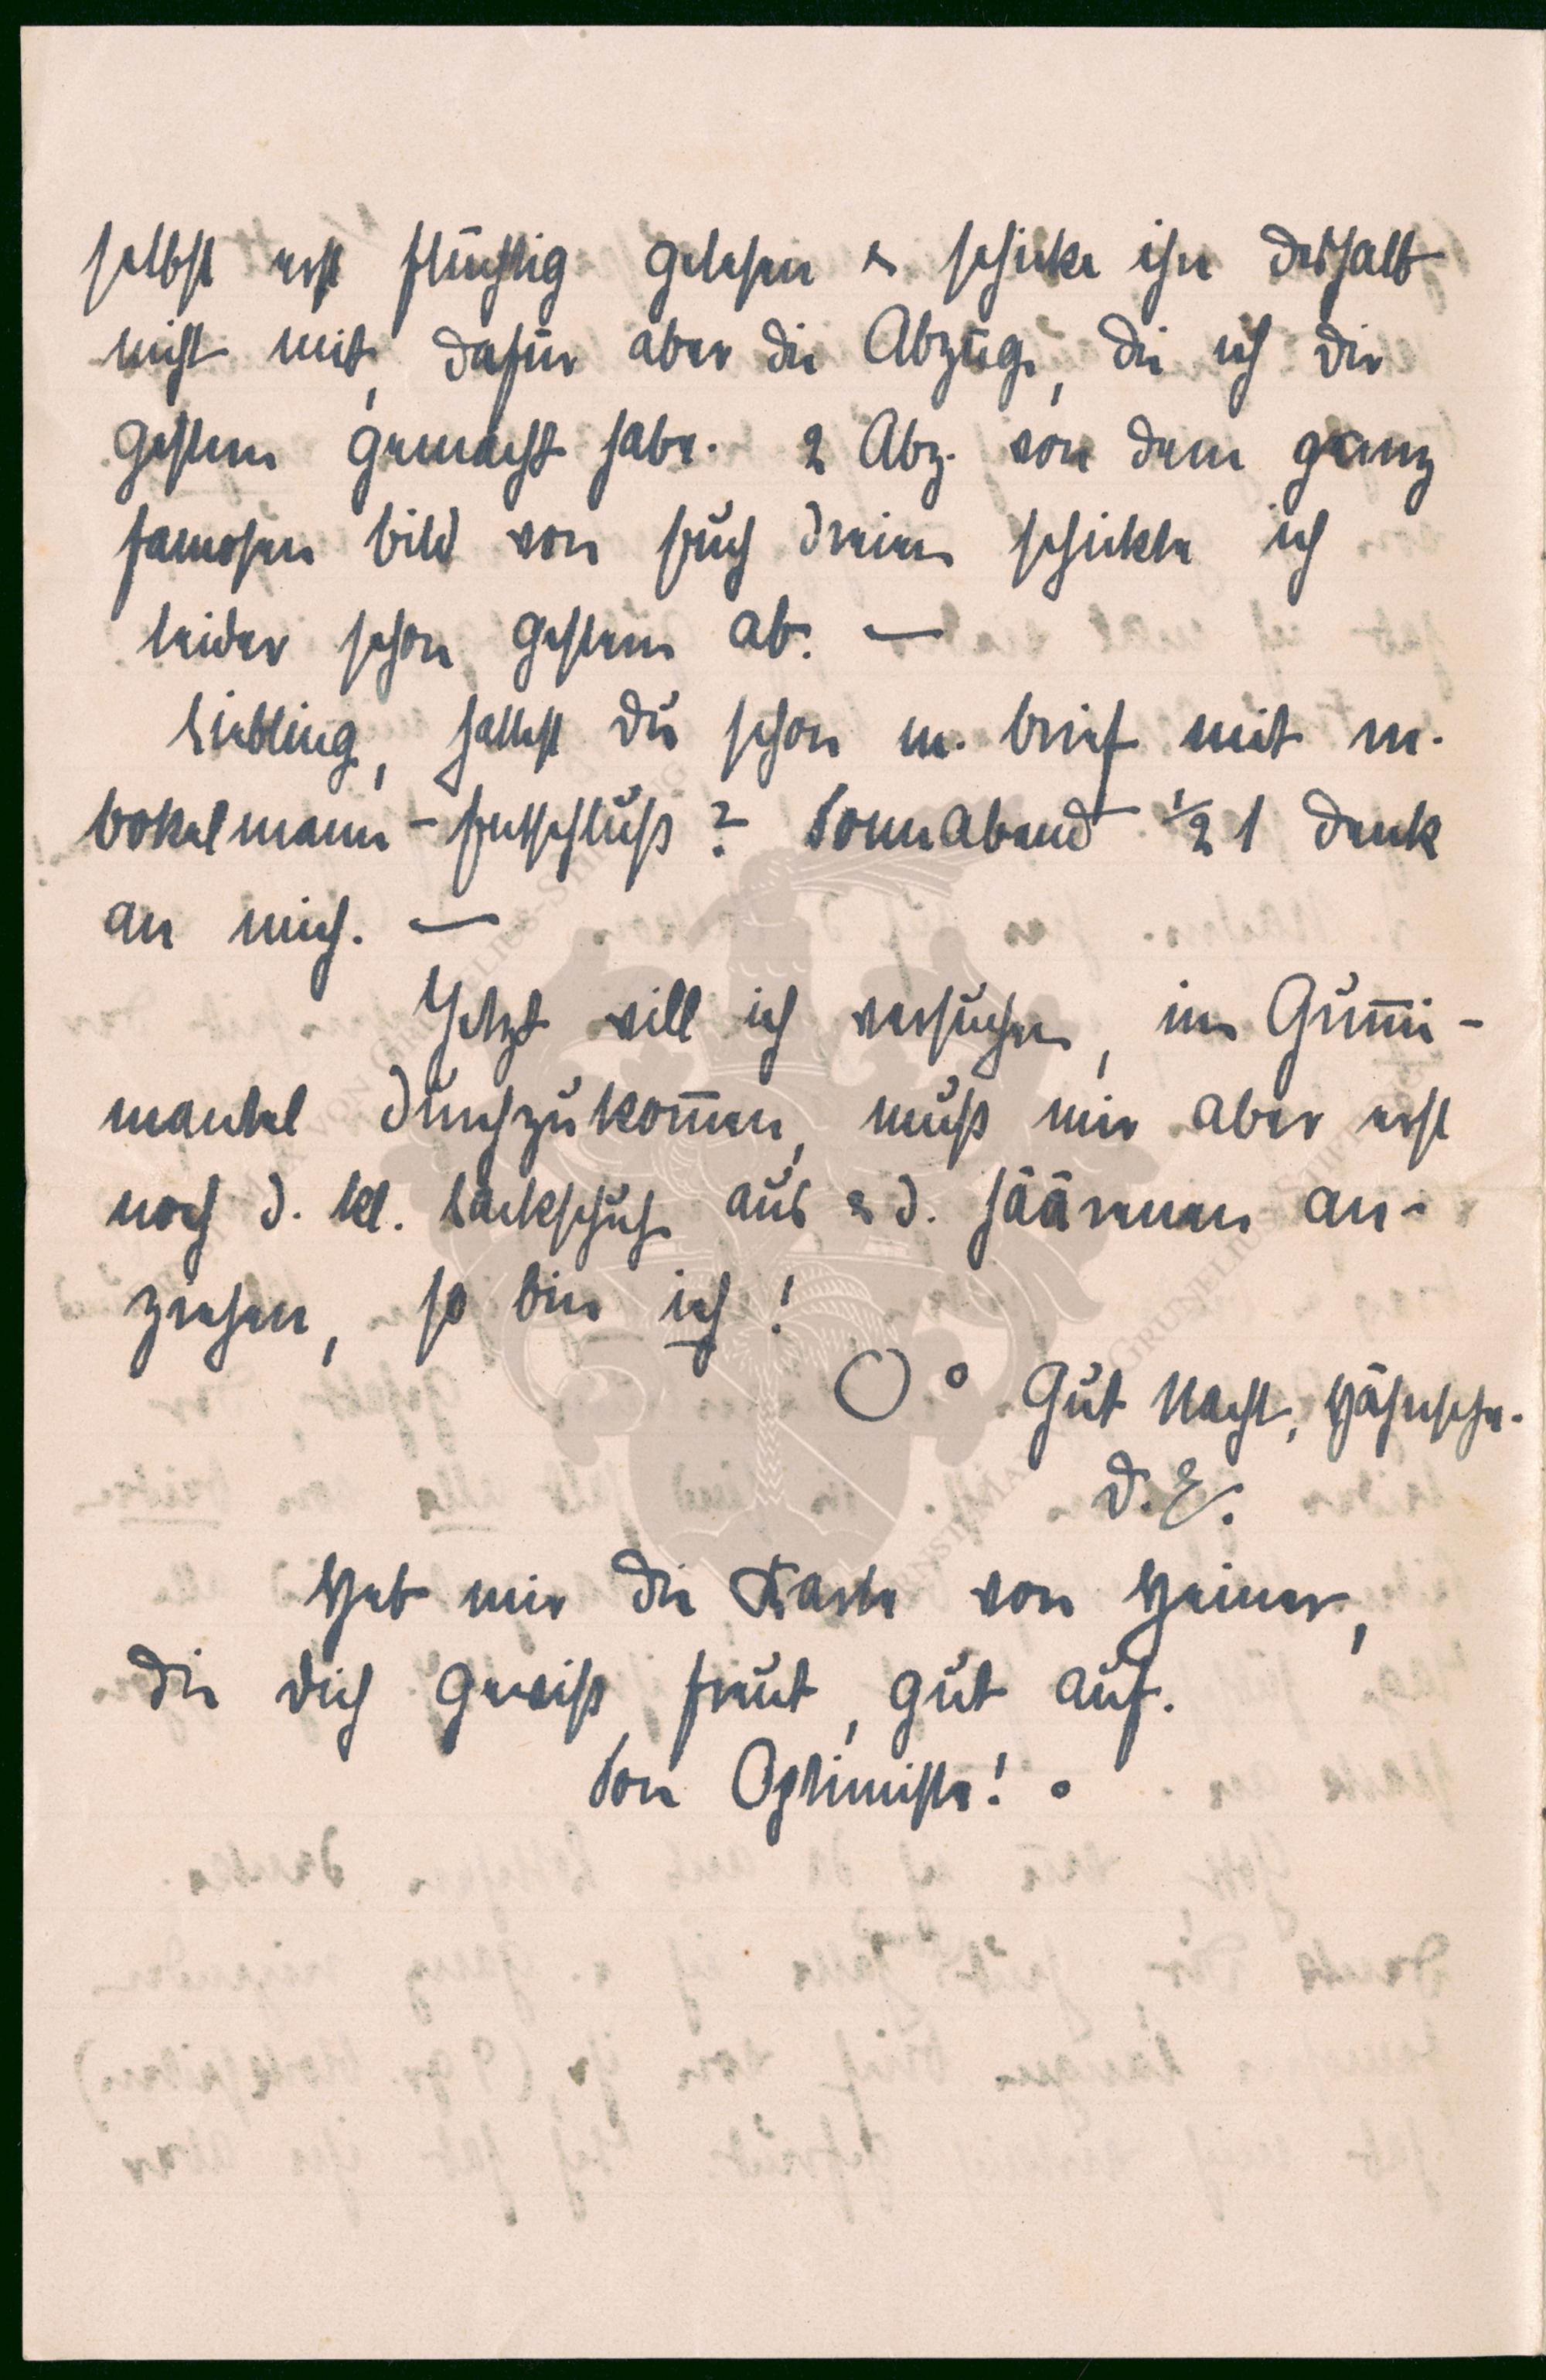 selbst erst flüchtig gelesen & schicke ihn deshalb
nicht mit, dafür aber die Abzüge, die ich dir
gestern gemacht habe. 2 Abz. von dem ganz
famosen Bild von Euch dreien schickte ich
leider schon gestern ab. —
Liebling, hattest Du schon m. Brief mit m.
Bokelmann-Entschluß? Sonnabend ½ 1 denk
an mich. —
Jetzt will ich versuchen, im Gum̅i-
mantel durchzukom̅en, muß mir aber erst
noch d. kl. Lackschuh aus & d. hää an-
ziehen, so bin ich!
Gut Nacht, Hähnsche.
D. E.
Heb mir die Karte von Heiner,
die dich gewiss freut, gut auf.
Son Optimiste!